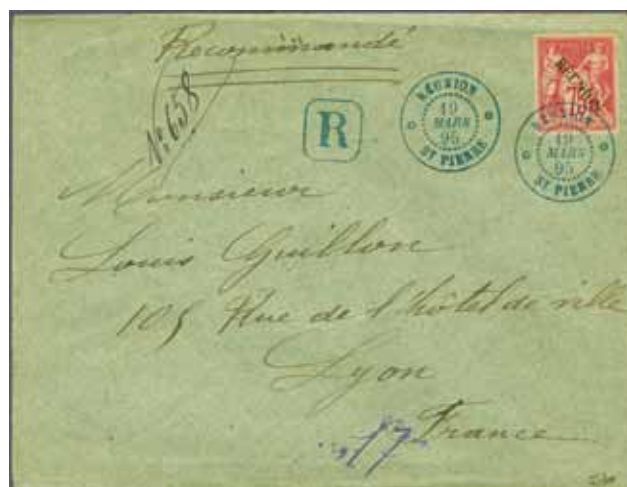 Recommandé
N° 658
R
RÉUNION
19
MARS
95
ST PIERRE
RÉUNION
75
RÉUNION
19
MARS
95
ST PIERRE
Monsieur
Louis Guillon
105 Rue de l'hôtel de ville
Lyon
France
17